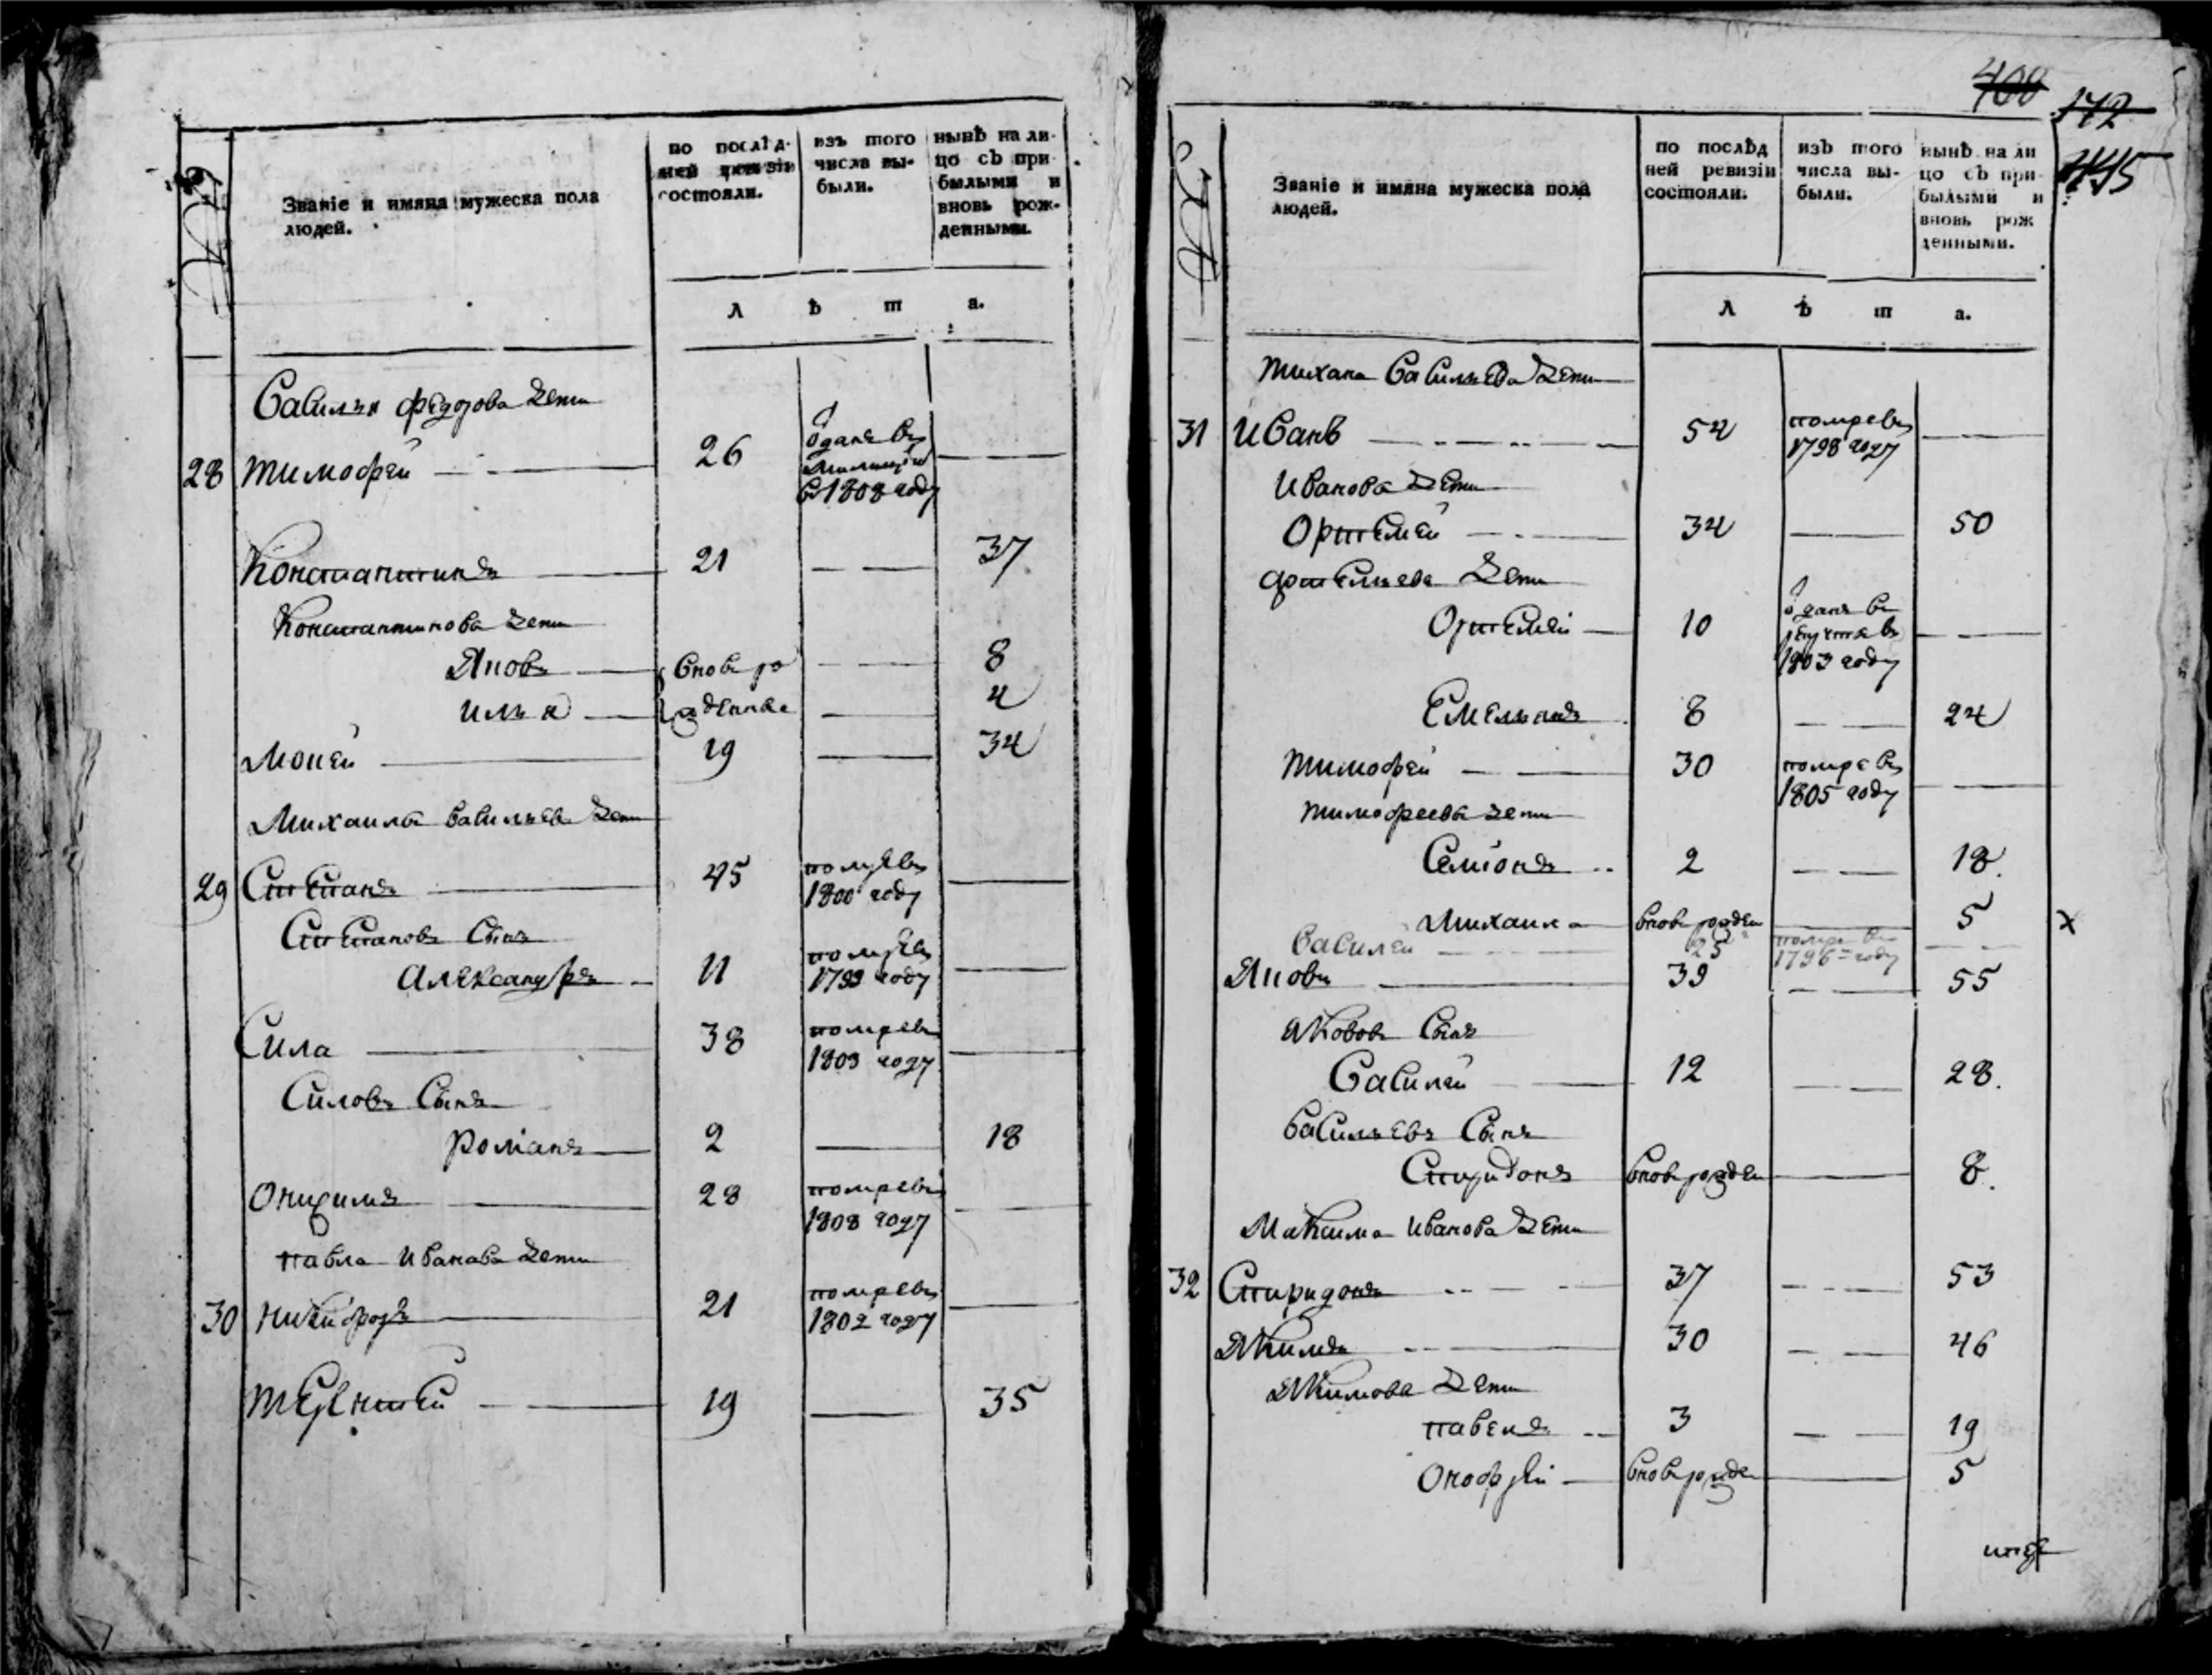 №
Званіе и имяна мужеска пола
людей.
по послѣд-
ней ревизіи
состояли.
изъ того
числа вы-
были.
нынѣ на ли-
цо съ при-
былыми и
вновь рож-
денными.
л ѣ т а.
Василья федорова дети
28 тимофей 26 отданъ въ
милицию
въ 1808 году
Константинъ 21 37
Константинова дети
Яковъ вновь ро 8
илья жденные 4
Мокей 19 34
Михаила васильева дети
29 Степанъ 45 помре въ
1800 году
Степановъ Сынъ
Александръ 11 помре въ
1799 году
Сила 38 помре въ
1803 году
Силовъ Сынъ
романъ 2 18
Онисимъ 28 помре въ
1808 году
павла иванова дети
30 никифоръ 21 помре въ
1802 году
терентей 19 35
400
172
445
№
Званіе и имяна мужеска пола
людей.
по послѣд
ней ревизіи
состояли.
изъ того
числа вы-
были.
нынѣ на ли
цо съ при-
былыми и
вновь рож
денными.
л ѣ т а.
тихана Васильева дети
31 иванъ 54 помре въ
1798 году
иванова дети
Ортемей 34 50
артемьева дети
Ортемей 10 отданъ въ
рекруты въ
1803 году
Емельянъ 8 24
тимофей 30 помре въ
1805 году
тимофеева дети
Семионъ 2 18.
Михаила вновь рожден 5 х
Василей 25 помре въ
1796 году
Яковъ 39 55
Яковов Сынъ
Василей 12 28.
Васильевъ Сынъ
Спиридонъ вновь рожден 8.
Максима иванова дети
32 Спиридонъ 37 53
Якимъ 30 46
Якимова дети
павелъ 3 19
Онофрей вновь рожден 5
итого